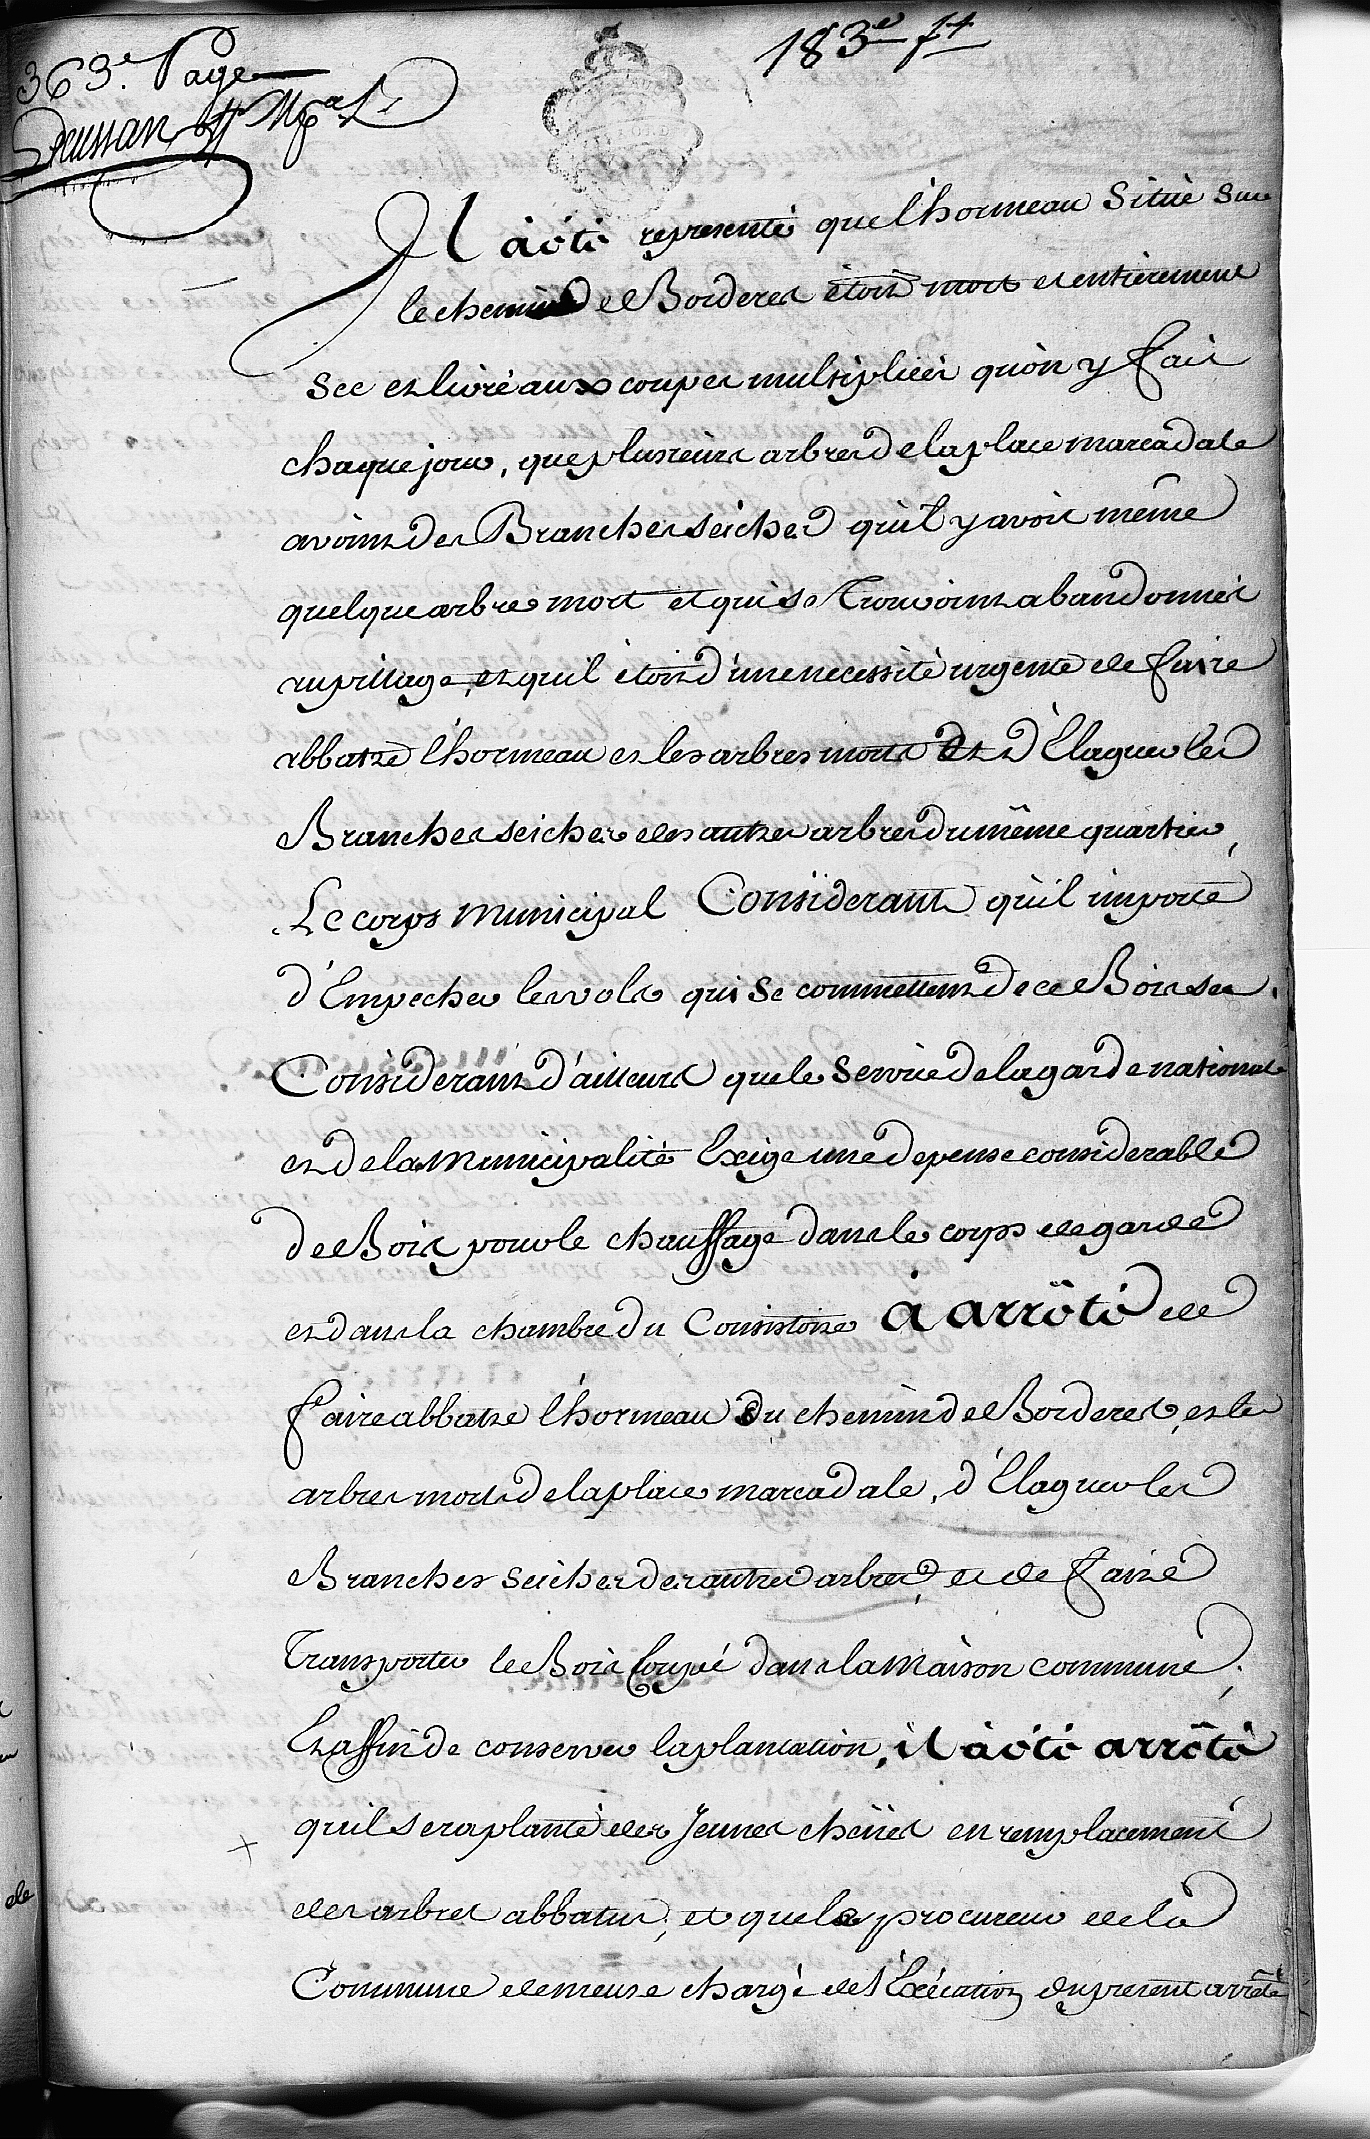 363.e Page
183.e f.t
Il a été representé que l'hormeau Situé Sur
le chemin de Borderes étoit mort et entierement
Sec et livré aux coupes multipliées qu'on y fait
chaque jour, que plusieurs arbres de la place marcadale
avoint des Branches seiches qu'il y avoit même
quelque arbre mort et qui se Trouvoint abandonnés
au pillage, et qu'il étoit d'une necessité urgente de faire
abbatre l'hormeau et les arbres morts Et d'Elaguer les
Branches seiches des autres arbres du même quartier,
Le corps municipal Considerant qu'il importe
d'Empecher les vols qui se commettent de ce Bois sec.
Considerant d'ailleurs que le Service de la garde nationale
et de la municipalité Exige une depense considerable
de Bois pour le chauffage dans le corps de garde
et dans la chambre du Consistoire a arrêté de
faire abbatre l'hormeau du chemin de Borderes, et les
arbres morts de la place marcadale, d'Elaguer les
Branches seiches des autres arbres, et de faire
Transporter le Bois Coupé dans la maison commune,
Et affin de conserver la plantation, il a été arrêté
qu'il sera planté des Jeunes chênes en remplacement
des arbres abbatus, et que le procureur de la
Commune demeure chargé de l'Exécution du present arrêté